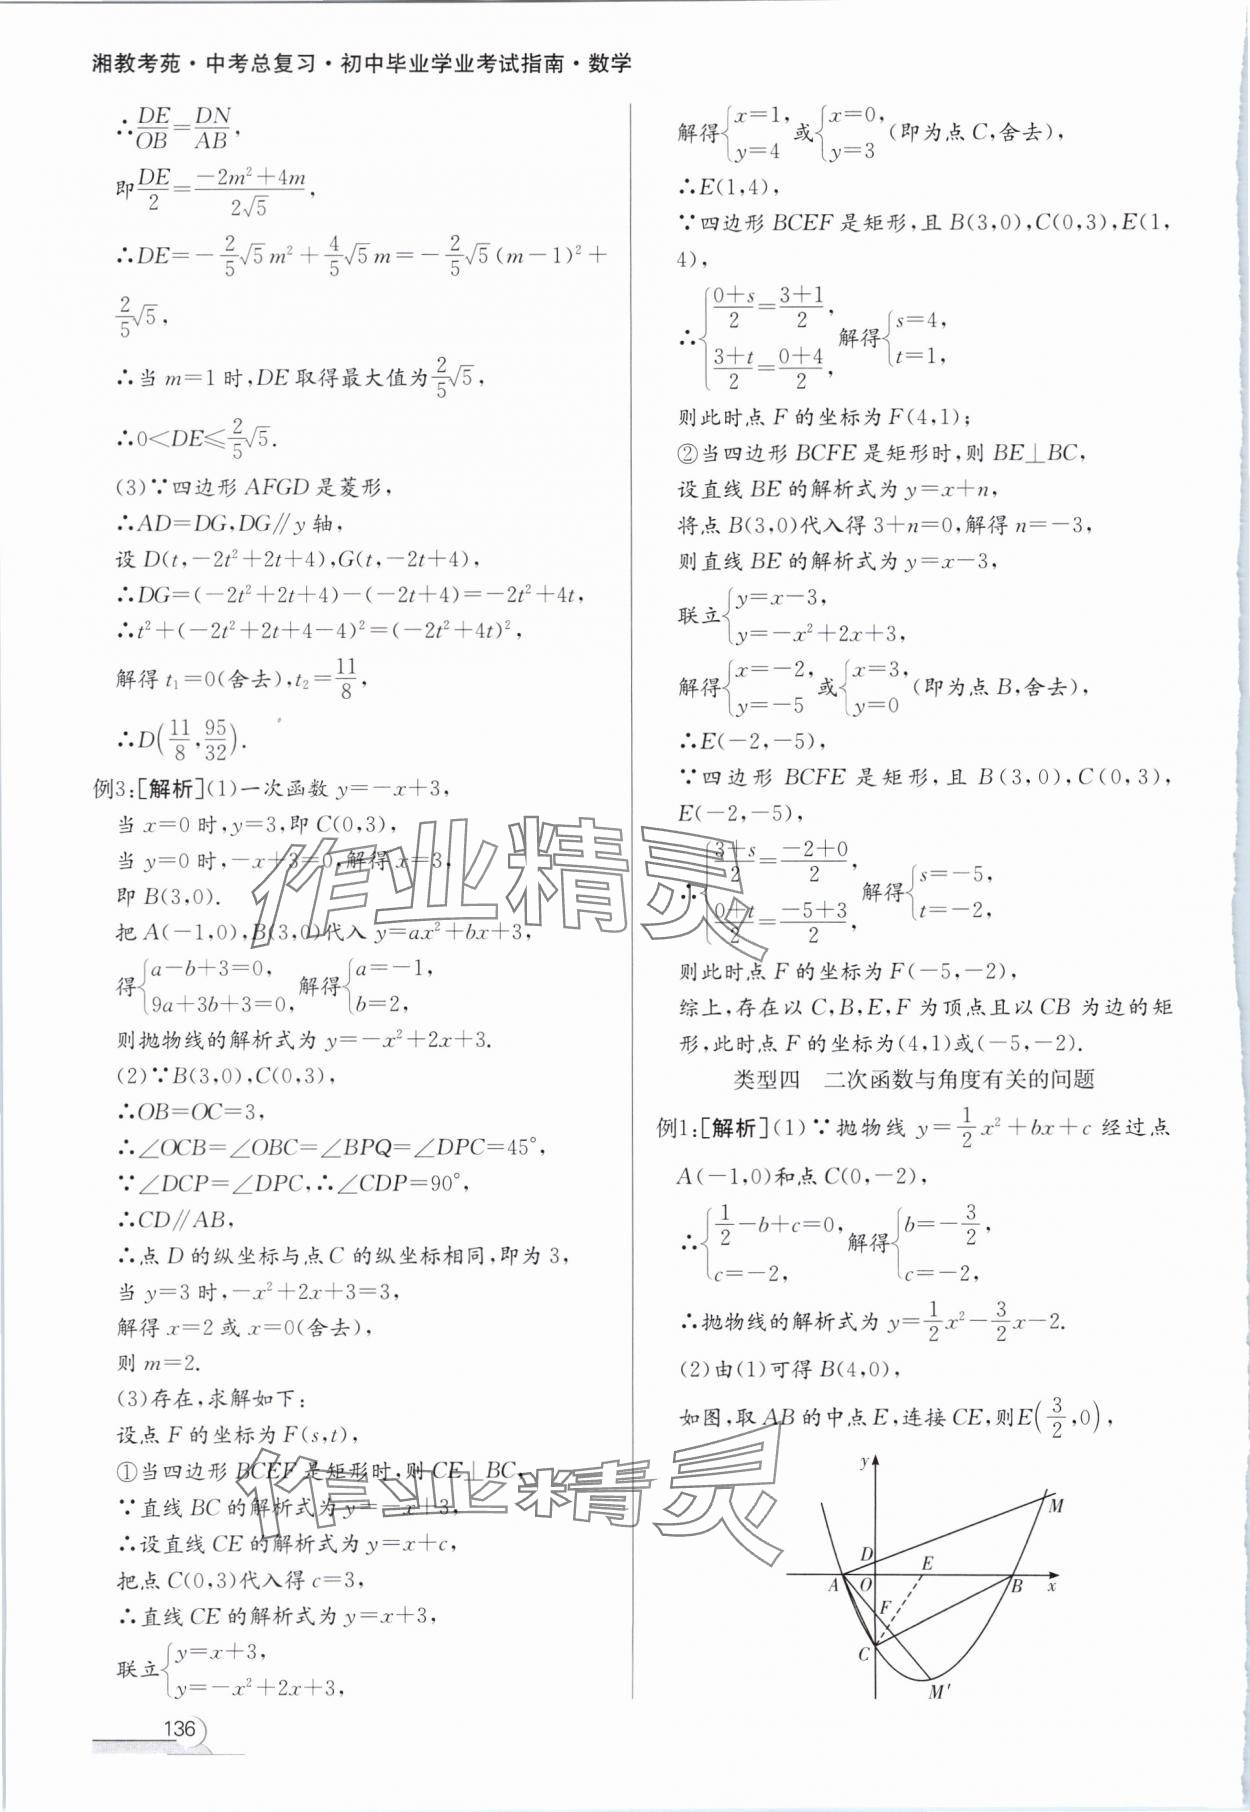 湘教考苑·中考总复习·初中毕业学业考试指南·数学
∴DE/OB=DN/AB,
即DE/2=(-2m²+4m)/(2√5),
∴DE=-2/5√5m²+4/5√5m=-2/5√5(m-1)²+
2/5√5,
∴当m=1时,DE取得最大值为2/5√5,
∴0<DE≤2/5√5.
(3)∵四边形AFGD是菱形,
∴AD=DG,DG∥y轴,
设D(t,-2t²+2t+4),G(t,-2t+4),
∴DG=(-2t²+2t+4)-(-2t+4)=-2t²+4t,
∴t²+(-2t²+2t+4-4)²=(-2t²+4t)²,
解得t₁=0(舍去),t₂=11/8,
∴D(11/8,95/32).
例3:[解析](1)一次函数y=-x+3,
当x=0时,y=3,即C(0,3),
当y=0时,-x+3=0,解得x=3,
即B(3,0).
把A(-1,0),B(3,0)代入y=ax²+bx+3,
得{a-b+3=0, 9a+3b+3=0, 解得{a=-1, b=2,
则抛物线的解析式为y=-x²+2x+3.
(2)∵B(3,0),C(0,3),
∴OB=OC=3,
∴∠OCB=∠OBC=∠BPQ=∠DPC=45°,
∵∠DCP=∠DPC,∴∠CDP=90°,
∴CD∥AB,
∴点D的纵坐标与点C的纵坐标相同,即为3,
当y=3时,-x²+2x+3=3,
解得x=2或x=0(舍去),
则m=2.
(3)存在,求解如下:
设点F的坐标为F(s,t),
①当四边形BCEF是矩形时,则CE⊥BC,
∵直线BC的解析式为y=-x+3,
∴设直线CE的解析式为y=x+c,
把点C(0,3)代入得c=3,
∴直线CE的解析式为y=x+3,
联立{y=x+3, y=-x²+2x+3,
解得{x=1, y=4 或{x=0, y=3 (即为点C,舍去),
∴E(1,4),
∵四边形BCEF是矩形,且B(3,0),C(0,3),E(1,
4),
∴{(0+s)/2=(3+1)/2, (3+t)/2=(0+4)/2, 解得{s=4, t=1,
则此时点F的坐标为F(4,1);
②当四边形BCFE是矩形时,则BE⊥BC,
设直线BE的解析式为y=x+n,
将点B(3,0)代入得3+n=0,解得n=-3,
则直线BE的解析式为y=x-3,
联立{y=x-3, y=-x²+2x+3,
解得{x=-2, y=-5 或{x=3, y=0 (即为点B,舍去),
∴E(-2,-5),
∵四边形BCFE是矩形,且B(3,0),C(0,3),
E(-2,-5),
∴{(3+s)/2=(-2+0)/2, (0+t)/2=(-5+3)/2, 解得{s=-5, t=-2,
则此时点F的坐标为F(-5,-2),
综上,存在以C,B,E,F为顶点且以CB为边的矩
形,此时点F的坐标为(4,1)或(-5,-2).
类型四 二次函数与角度有关的问题
例1:[解析](1)∵抛物线y=1/2x²+bx+c经过点
A(-1,0)和点C(0,-2),
∴{1/2-b+c=0, c=-2, 解得{b=-3/2, c=-2,
∴抛物线的解析式为y=1/2x²-3/2x-2.
(2)由(1)可得B(4,0),
如图,取AB的中点E,连接CE,则E(3/2,0),
y
M
D
E
A
O
B
x
F
C
M'
136
作业精灵
作业精灵